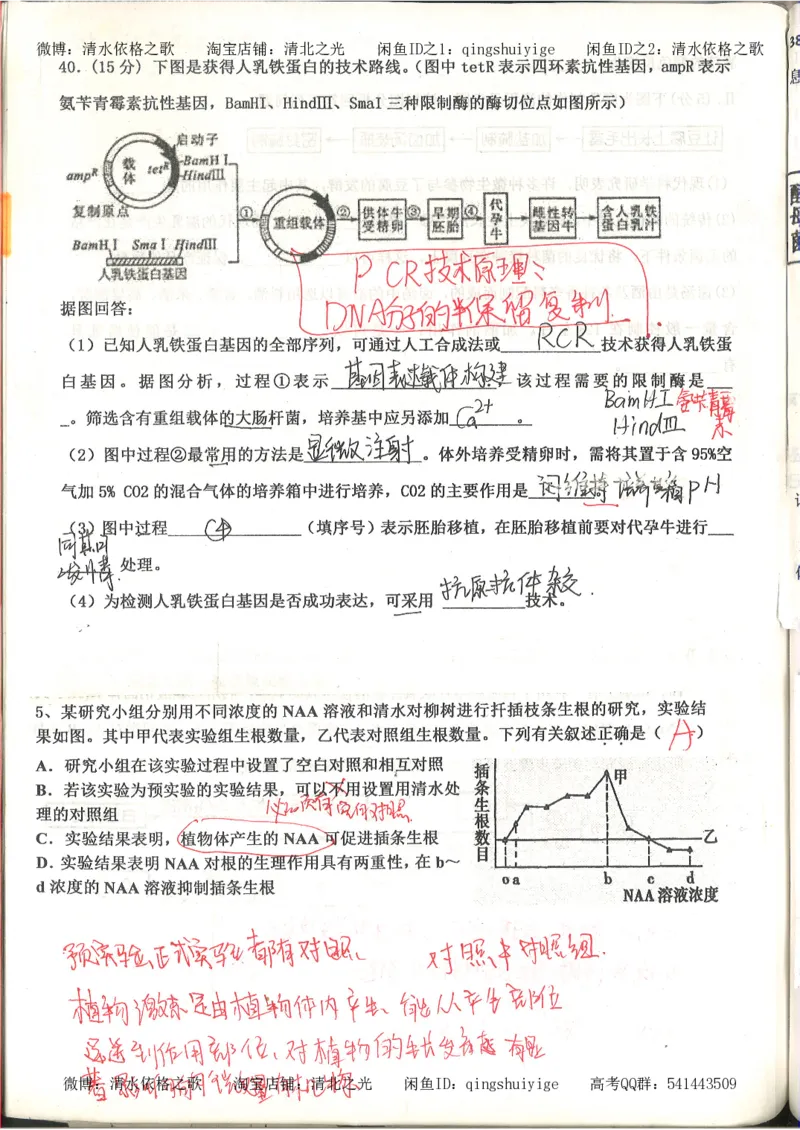 微博：清水依格之歌 淘宝店铺：清北之光 闲鱼ID之1：qingshuiyige 闲鱼ID之2：清水依格之歌
40．(15分) 下图是获得人乳铁蛋白的技术路线。(图中 tetR 表示四环素抗性基因，ampR 表示
氨苄青霉素抗性基因，BamHI、HindⅢ、SmaI 三种限制酶的酶切位点如图所示）
启动子
载体
ampR
tetR
BamHⅠ
HindⅢ
复制原点
BamHⅠ SmaⅠ HindⅢ
人乳铁蛋白基因
①
重组载体
②
供体牛受精卵
③
早期胚胎
④
代孕牛
雌性转基因牛
含人乳铁蛋白乳汁
PCR技术原理：
DNA分子的半保留复制
据图回答：
（1）已知人乳铁蛋白基因的全部序列，可通过人工合成法或 RCR 技术获得人乳铁蛋
白基因。据图分析，过程①表示 基因表达载体构建 该过程需要的限制酶是
BaimHI HindⅢ
。筛选含有重组载体的大肠杆菌，培养基中应另添加 Ca2+ 。
（2）图中过程②最常用的方法是 显微注射 。体外培养受精卵时，需将其置于含 95%空
气加 5% CO2 的混合气体的培养箱中进行培养，CO2 的主要作用是 维持 PH
（3）图中过程 ④ （填序号）表示胚胎移植，在胚胎移植前要对代孕牛进行
同期发情 处理。
（4）为检测人乳铁蛋白基因是否成功表达，可采用 抗原抗体杂交 技术。
5、某研究小组分别用不同浓度的 NAA 溶液和清水对柳树进行扦插枝条生根的研究，实验结
果如图。其中甲代表实验组生根数量，乙代表对照组生根数量。下列有关叙述正确是（ A ）
A．研究小组在该实验过程中设置了空白对照和相互对照
B．若该实验为预实验的实验结果，可以不用设置用清水处
理的对照组
C．实验结果表明，植物体产生的 NAA 可促进插条生根
D．实验结果表明 NAA 对根的生理作用具有两重性，在 b～
d 浓度的 NAA 溶液抑制插条生根
插条生根数目
甲
乙
o a b c d
NAA 溶液浓度
预实验、正式实验都有对照、 对照中对照组.
植物激素是由植物体内产生、能从产生部位
运送到作用部位、对植物的生长发育 有显
著
微博：清水依格之歌 淘宝店铺：清北之光 闲鱼ID：qingshuiyige 高考QQ群：541443509